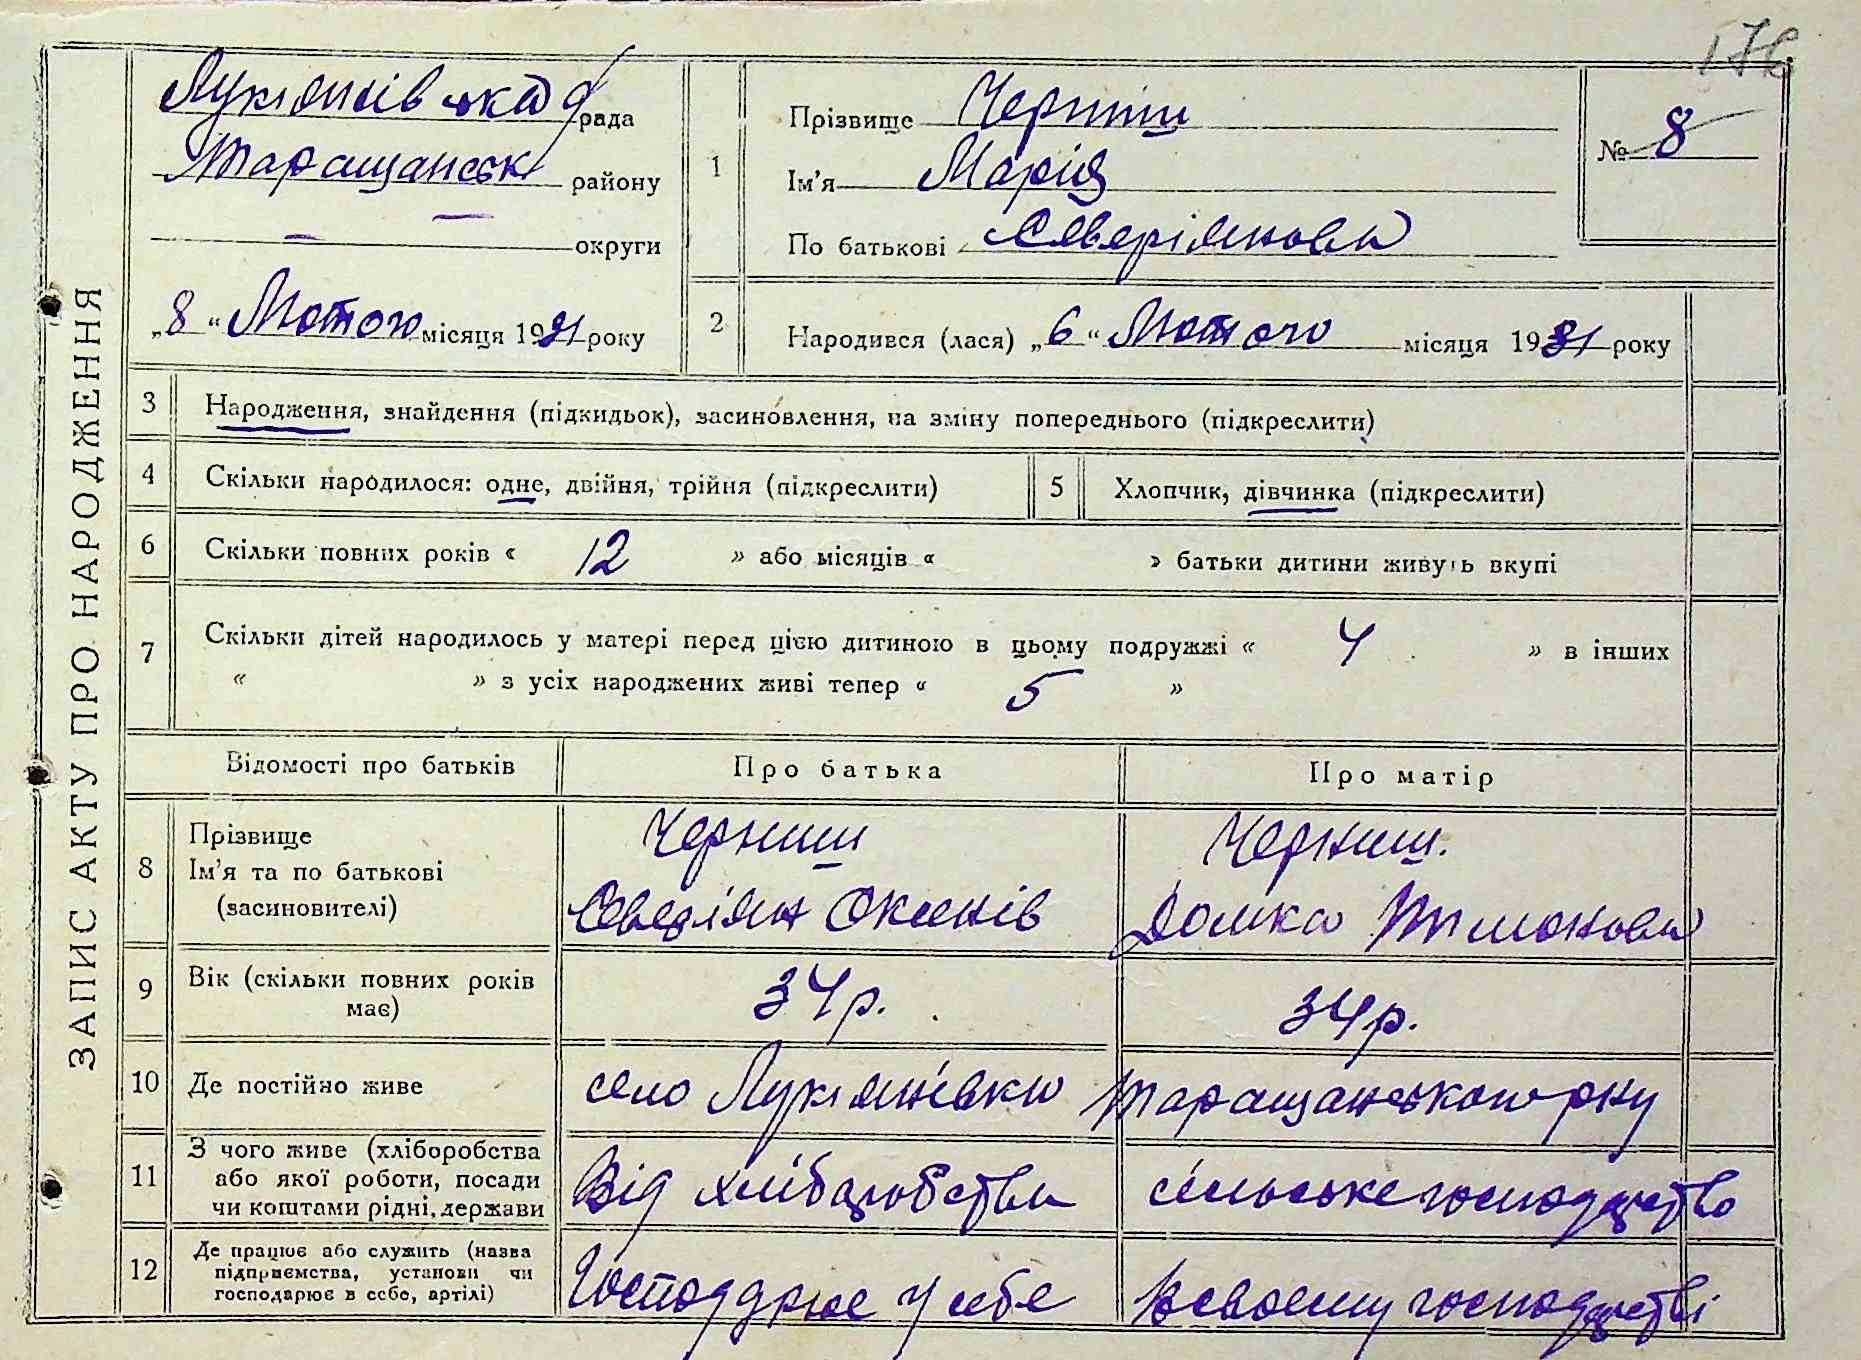 176
Лукянівська рада
Таращанськ району
— округи
„8“ Лютого місяця 1931 року
1 Прізвище Черниш
Ім'я Марія
По батькові Северіянова
№ 8
2 Народився (лася) „6“ Лютого місяця 1931 року
ЗАПИС АКТУ ПРО НАРОДЖЕННЯ
3 Народження, знайдення (підкидьок), засиновлення, на зміну попереднього (підкреслити)
4 Скільки народилося: одне, двійня, трійня (підкреслити) 5 Хлопчик, дівчинка (підкреслити)
6 Скільки повних років « 12 » або місяців « » батьки дитини живуть вкупі
7 Скільки дітей народилось у матері перед цією дитиною в цьому подружжі « 4 » в інших
« » з усіх народжених живі тепер « 5 »
Відомості про батьків Про батька Про матір
8 Прізвище
Ім'я та по батькові
(засиновителі)
Черниш
Северіян
Черниш.
Домка Тимонова
9 Вік (скільки повних років
має)
34 р. 34 р.
10 Де постійно живе село Лукянівка Таращанського рну
11 З чого живе (хліборобства
або якої роботи, посади
чи коштами рідні, держави
Від хліборобства сільське господарство
12 Де працює або служить (назва
підприємства, установи чи
господарює в себе, артілі)
Господарює у себе в своєму господарстві